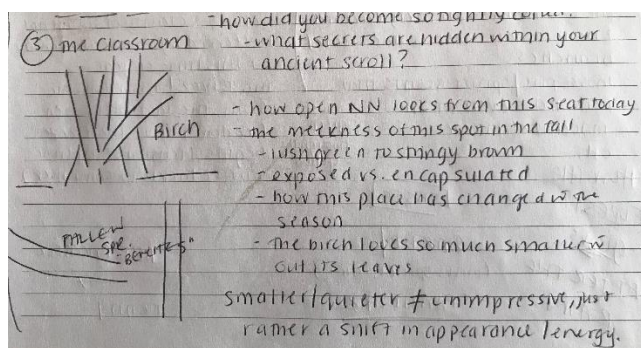 - how did you become so tightly
③ The classroom
- what secrets are hidden within your
ancient scroll?
Birch
- how open NN looks from this seat today
- the meekness of this spot in the fall
- lush green to stingy brown
- exposed vs. encapsulated
- how this place has changed w the
season
- the birch looks so much smaller w
out its leaves
smaller/quieter ≠ unimpressive, just
rather a shift in appearance/energy.
FALLEN
spe.